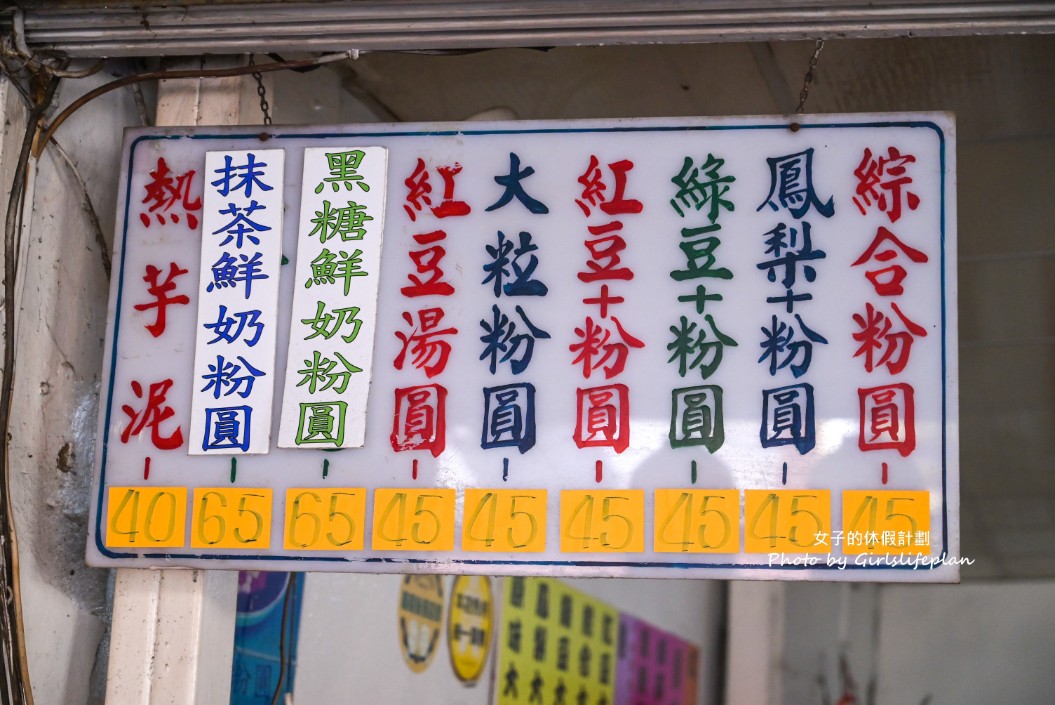 綜合粉圓 45
鳳梨+粉圓 45
綠豆+粉圓 45
紅豆+粉圓 45
大粒粉圓 45
紅豆湯圓 45
黑糖鮮奶粉圓 65
抹茶鮮奶粉圓 65
熱芋泥 40
女子的休假計劃
Photo by Girlslifeplan